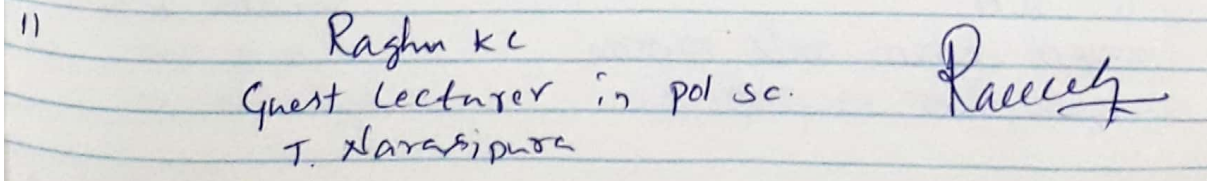 11
Raghu K C
Guest Lecturer in pol sc.
T. Narasipura